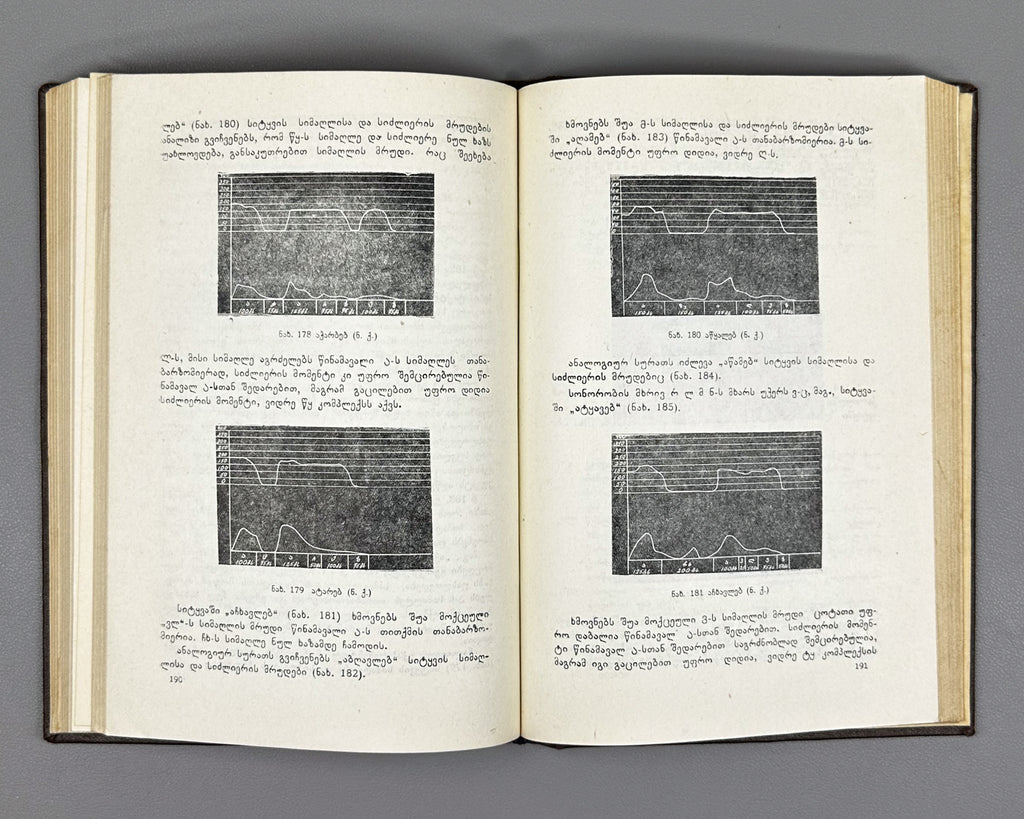 ლებ“ (ნახ. 180) სიტყვის სიმაღლისა და სიძლიერის მრუდების
ანალიზი გვიჩვენებს, რომ წყ-ს სიმაღლე და სიძლიერე ნულ ხაზს
უახლოვდება, განსაკუთრებით სიმაღლის მრუდი. რაც შეეხება
ნახ. 178 აკარბებ (ნ. ქ.)
ლ-ს, მისი სიმაღლე აგრძელებს წინამავალი ა-ს სიმაღლეს თანა-
ბარზომიერად, სიძლიერის მომენტი კი უფრო შემცირებულია წი-
ნამავალ ა-სთან შედარებით, მაგრამ გაცილებით უფრო დიდია
სიძლიერის მომენტი, ვიდრე წყ კომპლექსს აქვს.
ნახ. 179 ატარებ (ნ. ქ.)
სიტყვაში „აჩხავლებ“ (ნახ. 181) ხმოვნებს შუა მოქცეული
„ვლ“-ს სიმაღლის მრუდი წინამავალი ა-ს თითქმის თანაბარზო-
მიერია. ჩხ-ს სიმაღლე ნულ ხაზამდე ჩამოდის.
ანალოგიურ სურათს გვიჩვენებს „აბღავლებ“ სიტყვის სიმაღ-
ლისა და სიძლიერის მრუდები (ნახ. 182).
190
ხმოვნებს შუა მ-ს სიმაღლისა და სიძლიერის მრუდები სიტყვა-
ში „აღამებ“ (ნახ. 183) წინამავალი ა-ს თანაბარზომიერია. მ-ს სი-
ძლიერის მომენტი უფრო დიდია, ვიდრე ღ-ს.
ნახ. 180 აწყალებ (ნ. ქ)
ანალოგიურ სურათს იძლევა „აწამებ“ სიტყვის სიმაღლისა და
სიძლიერის მრუდებიც (ნახ. 184).
სონორობის მხრივ რ ლ მ ნ-ს მხარს უჭერს ვ-ც, მაგ., სიტყვა-
ში „ატყავებ“ (ნახ. 185).
ნახ. 181 აჩხავლებ (ნ. ქ.)
ხმოვნებს შუა მოქცეული ვ-ს სიმაღლის მრუდი ცოტათი უფ-
რო დაბალია წინამავალ ა-სთან შედარებით. სიძლიერის მომენ-
ტი წინამავალ ა-სთან შედარებით საგრძნობლად შემცირებულია,
მაგრამ იგი გაცილებით უფრო დიდია, ვიდრე ტყ კომპლექსის
191